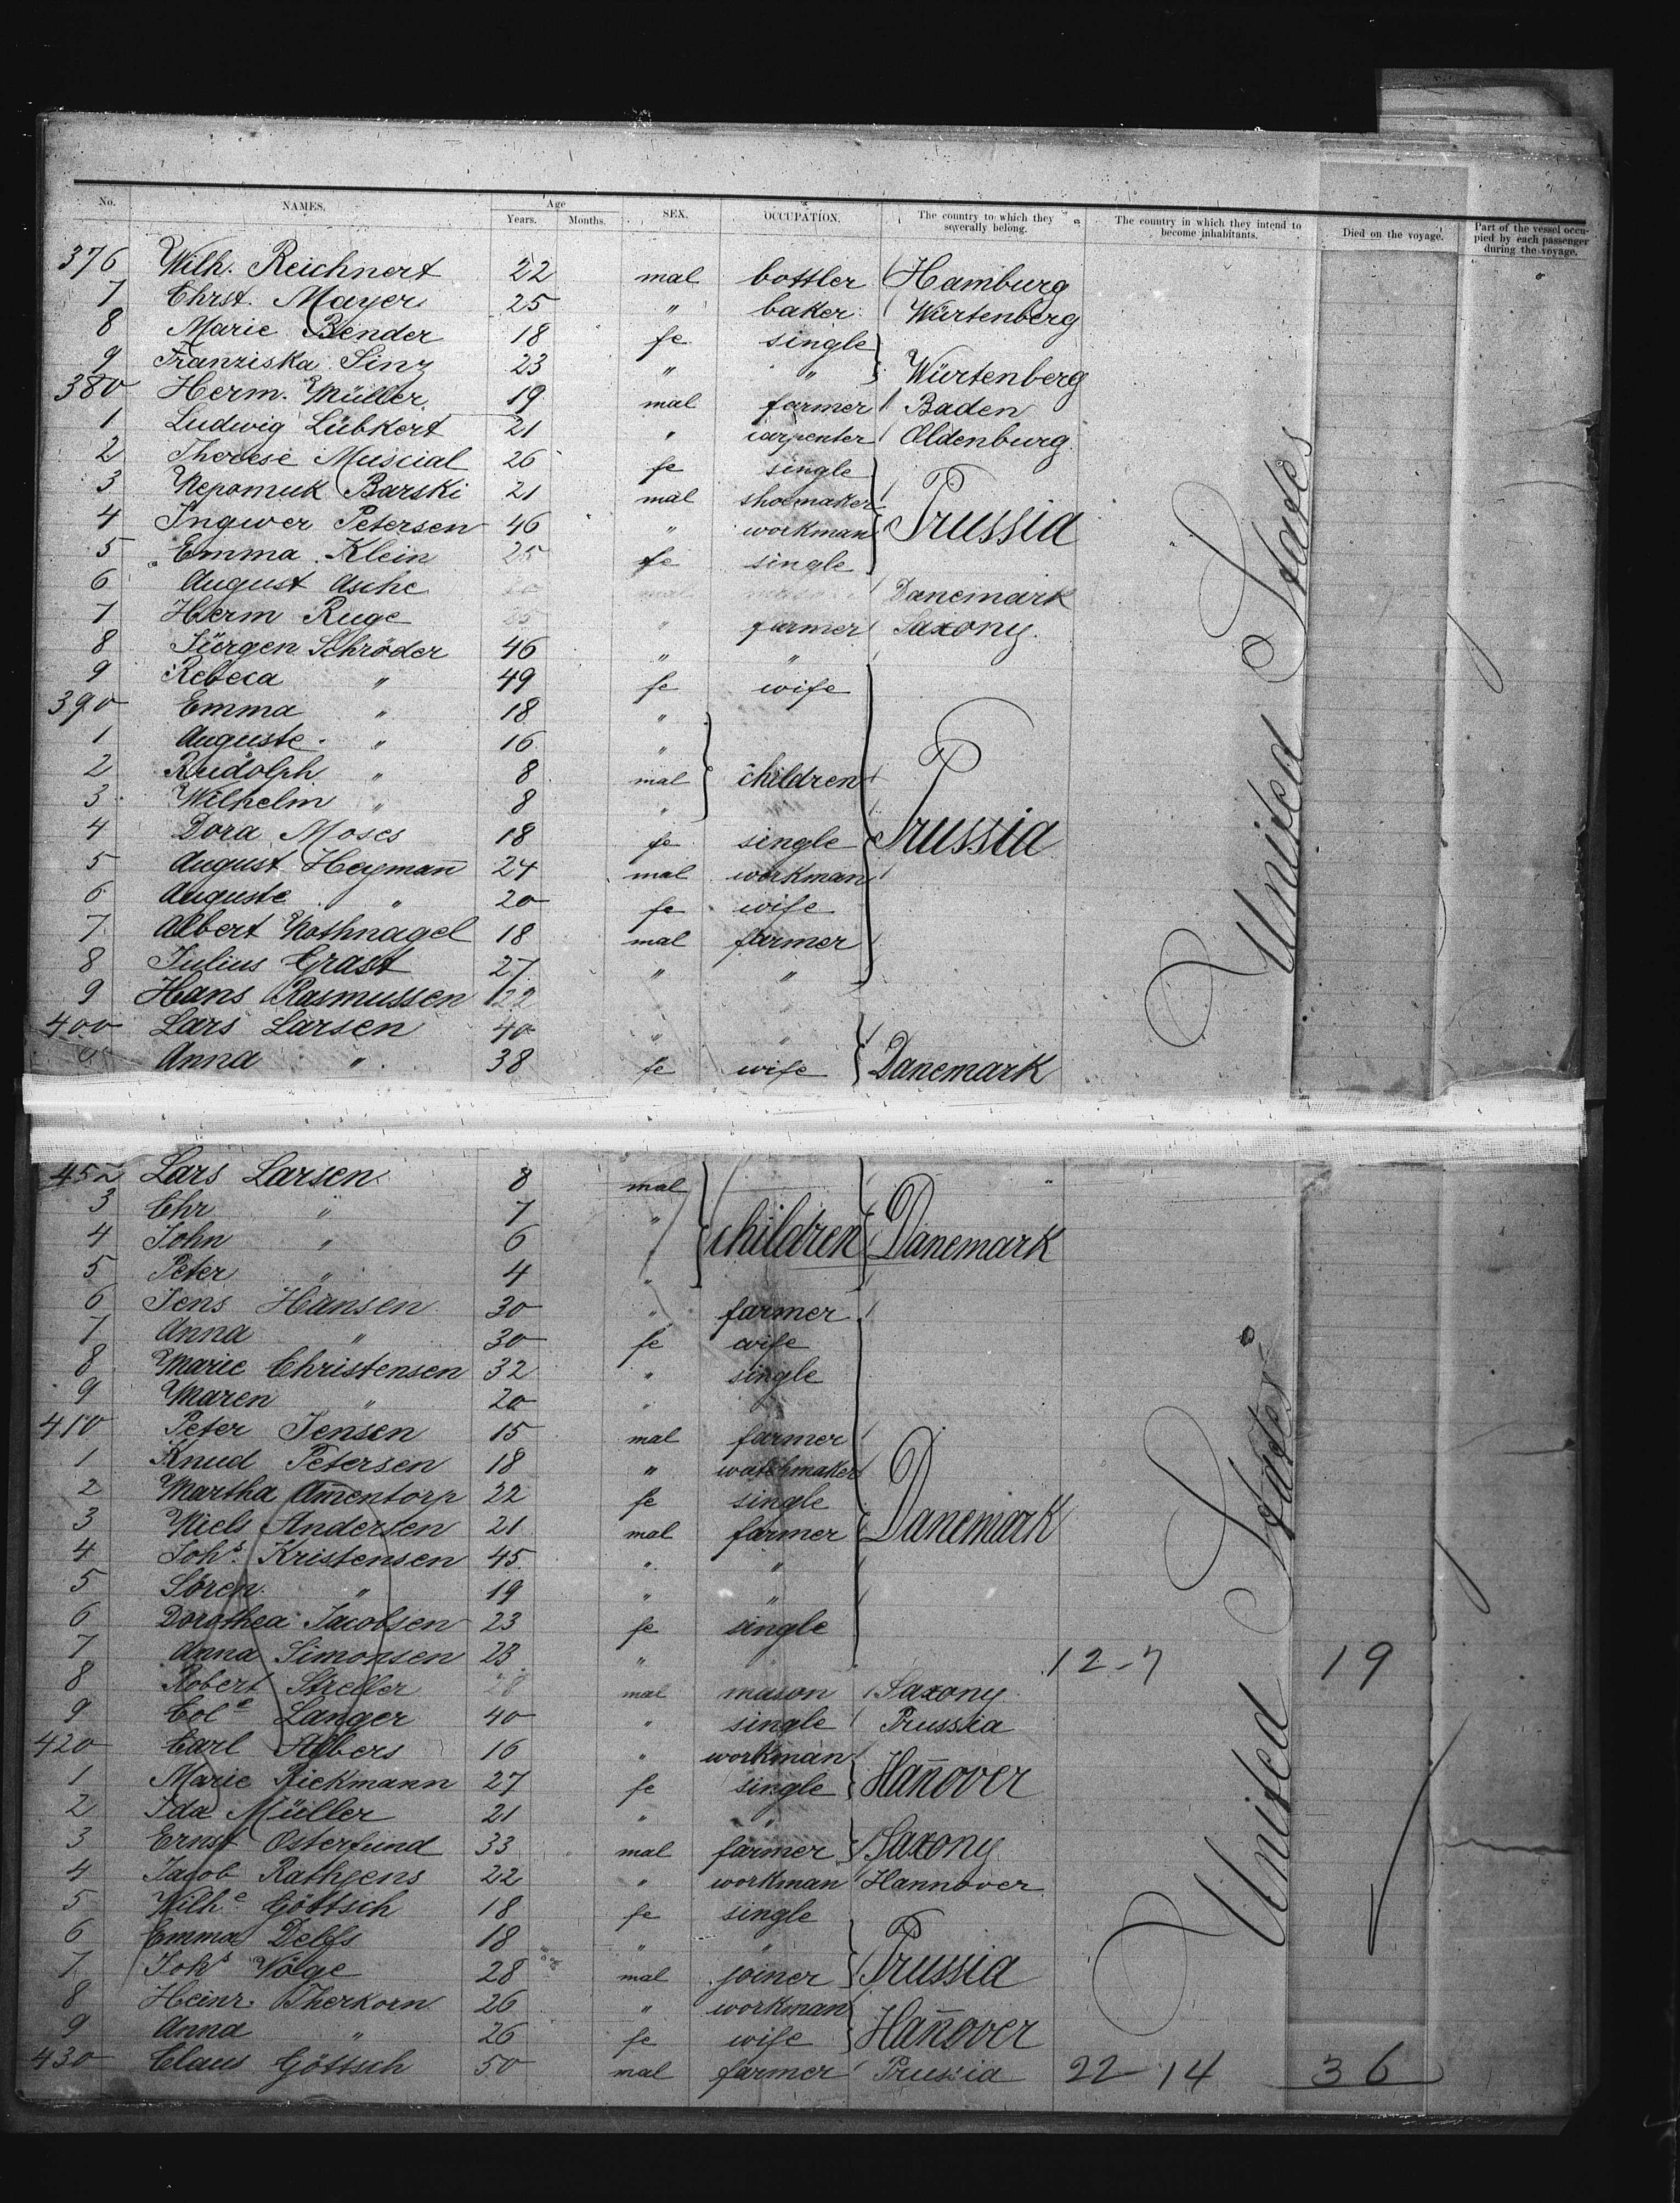 No. NAMES. Age Years. Months. SEX. OCCUPATION. The country to which they severally belong. The country in which they intend to become inhabitants. Died on the voyage. Part of the vessel occupied by each passenger during the voyage.
376 Wilh. Reichnert 22 mal bottler Hamburg
7 Chrst. Mayer 25 " baker Würtenberg
8 Marie Bender 18 fe single
9 Franziska Sinz 23 " " Würtenberg
380 Herm. Müller 19 mal farmer Baden
1 Ludwig Lübkert 21 " carpenter Oldenburg
2 Therese Muscial 26 fe single
3 Nepomuk Barski 21 mal shoemaker
4 Ingwer Petersen 46 " workman Prussia
5 Emma Klein 25 fe single
6 August Asche Danemark
7 Herm Ruge " farmer Saxony
8 Jürgen Schröder 46 " "
9 Rebeca " 49 fe wife
390 Emma " 18 "
1 Auguste " 16 "
2 Rudolph " 8 mal children
3 Wilhelm " 8 "
4 Dora Moses 18 fe single Prussia
5 August Heyman̄ 24 mal workman
6 Auguste " 20 fe wife
7 Albert Nothnagel 18 mal farmer
8 Julius Grast 27 " "
9 Hans Rasmussen 22
400 Lars Larsen 40 " "
Anna " 38 fe wife Danemark
United States
452 Lars Larsen 8 mal
3 Chr " 7 "
4 John " 6 children Danemark
5 Peter " 4 "
6 Jens Hansen 30 " farmer
7 Anna " 30 fe wife
8 Marie Christensen 32 " single
9 Maren " 20 "
410 Peter Jensen 15 mal farmer
1 Knud Petersen 18 " watchmaker
2 Martha Am̄entorp 22 fe single
3 Niels Andersen 21 mal farmer Danemark
4 Johs. Kristensen 45 " "
5 Sören " 19 " "
6 Dorothea Jacobsen 23 fe single
7 Anna Simonsen 23 " 12-7 19
8 Robert Streller 28 mal mason Saxony
9 Cole Langer 40 " single Prussia
420 Carl Albers 16 " workman
1 Marie Rickmann 27 fe single Han̄over
2 Ida Müller 21 " "
3 Ernst Osterfund 33 mal farmer Saxony
4 Jacob Rathjens 22 " workman Hannover
5 Wilhe Göttsch 18 fe single
6 Emma Delfs 18 " "
7 Johs Völge 28 mal joiner Prussia
8 Heinr. Therkorn 26 " workman
9 Anna " 26 fe wife Han̄over
430 Claus Göttsch 50 mal farmer Prussia 22-14 36
United States